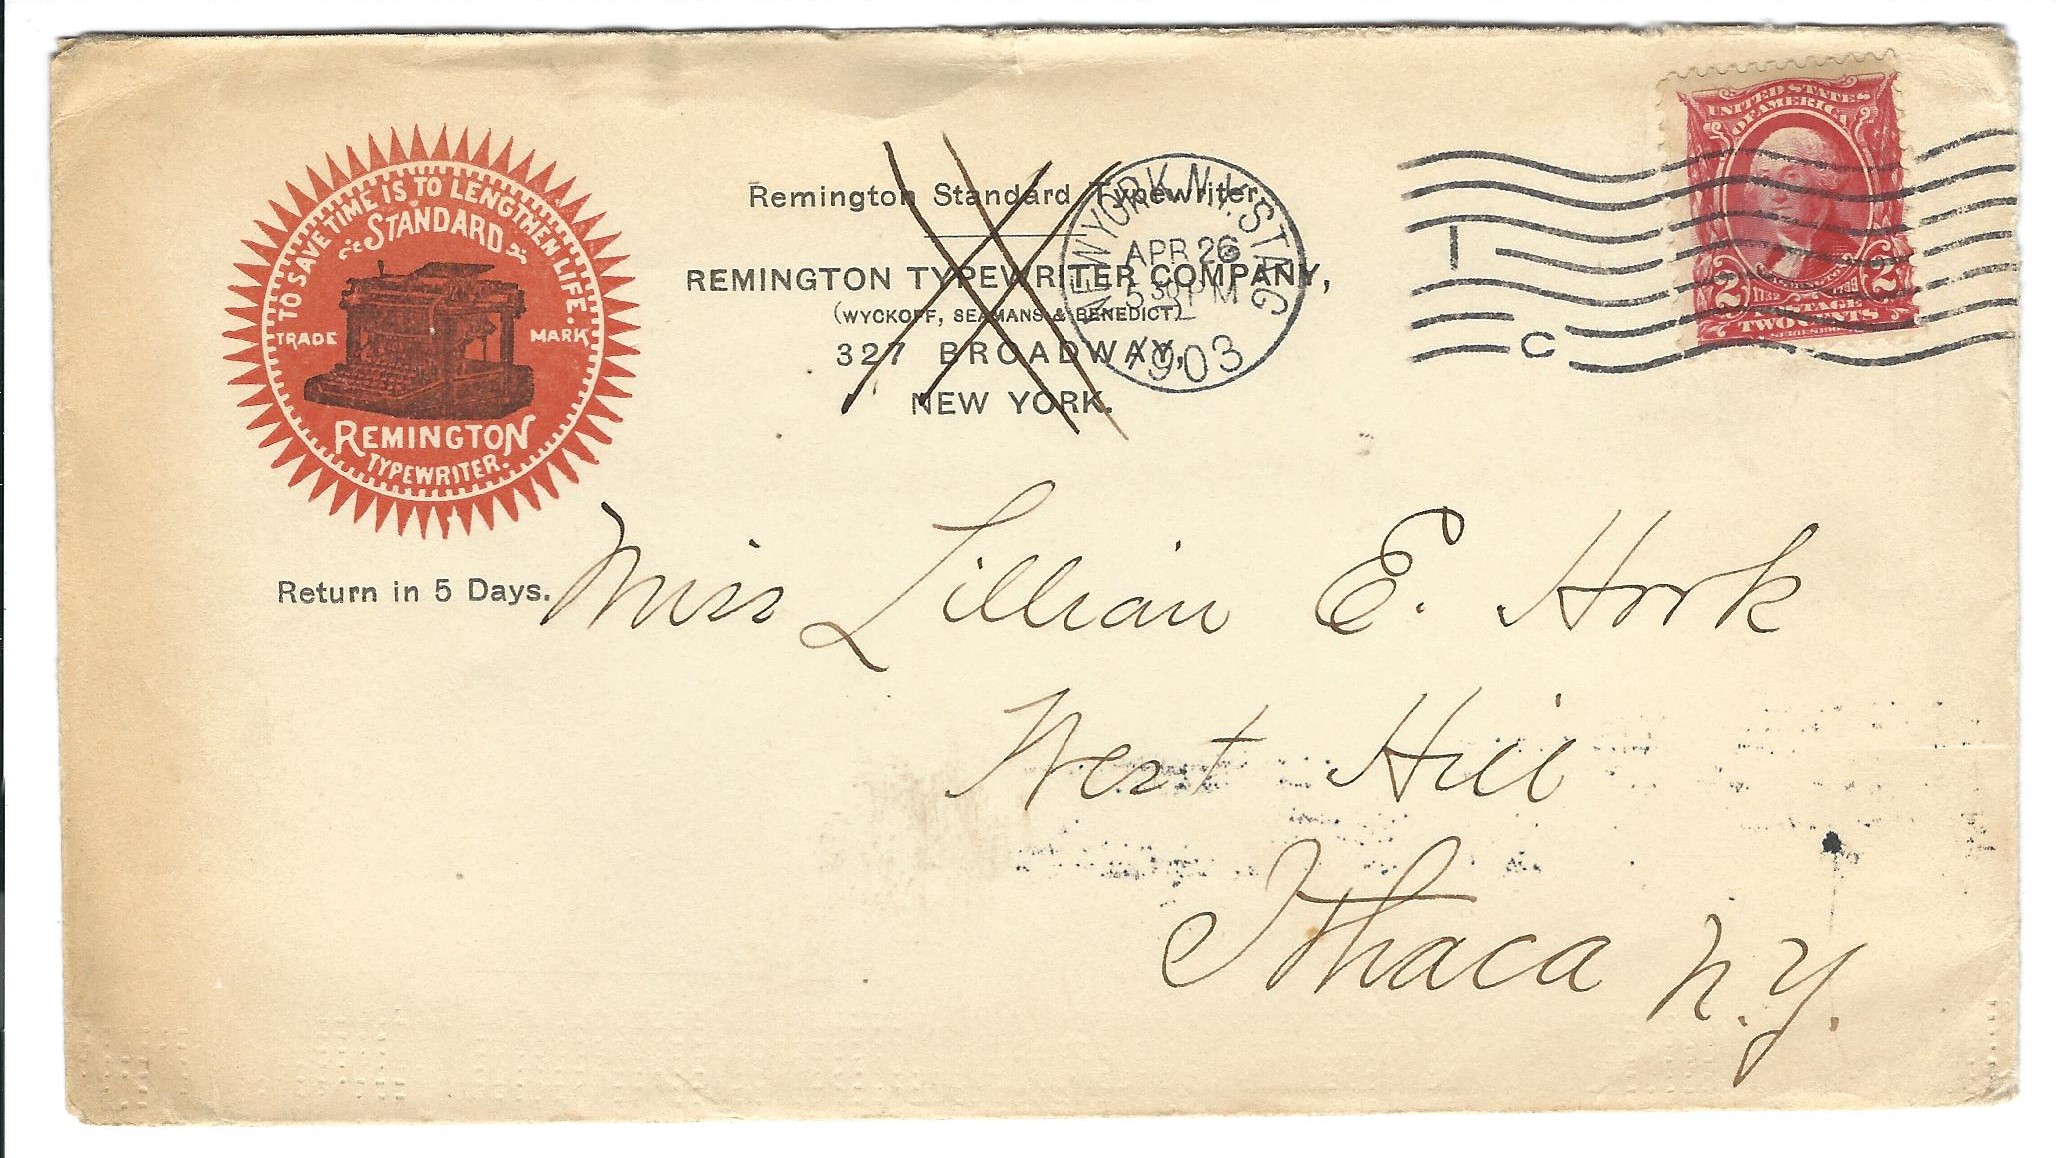 TO SAVE TIME IS TO LENGTHEN LIFE.
STANDARD
TRADE MARK
REMINGTON
TYPEWRITER.
Return in 5 Days.
Remington Standard Typewriter.
REMINGTON TYPEWRITER COMPANY,
(WYCKOFF, SEAMANS & BENEDICT)
327 BROADWAY,
NEW YORK.
NEW YORK, N.Y. STA. G
APR 26
5 30 PM
1903
1
C
UNITED STATES
OF AMERICA
2 2
POSTAGE
TWO CENTS
Miss Lillian E. Hook
West Hill
Ithaca N.Y.